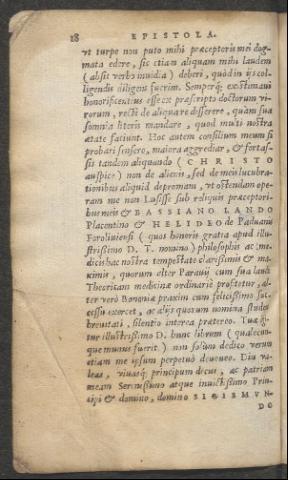 18 EPISTOLA.
vt turpe non puto mihi præceptoris mei dog
mata edere, sic etiam aliquam mihi laudem
(absit verbo inuidia) deberi, quòd in ijs col-
ligendis diligens fuerim. Semperq; existimaui
honorificentius esse ex præscripto doctorum vi-
rorum, rectè de aliqua re disserere, quàm sua
somnia literis mandare, quod multi nostra
ætate faciunt. Hoc autem consilium meum si
probari sensero, maiora aggrediar, & fortas-
sis tandem aliquando (CHRISTO
auspice) non de alienis, sed de meis lucubra-
tionibus aliquid depromam, vt ostendam ope-
ram me non lusisse sub reliquis præceptori-
bus meis & BASSIANO LANDO
Placentino & HELIDEO de Paduanis
Foroliuiensi (quos honoris gratia apud illu-
strissimo D. T. nomino) philosophis ac me-
dicis hac nostra tempestate clarissimis & ma-
ximis, quorum alter Patauij cum sua laude
Theoricam medicinæ ordinariè profitetur, al-
ter verò Bononiæ praxim cum felicissimo suc-
cessu exercet, ac alijs quorum nomina studio
breuitati, silentio interea prætereo. Tuæ igi-
tur illustrissimo D. hunc librum (qualecun-
que munus fuerit) non solùm dedico verùm
etiam me ipsum perpetuò deuoueo. Diu va-
leas, viuasq; principum decus, ac patriam
meam Serenissimo atque inuictissimo Prin-
cipi & domino, domino SIGISMVN-
DO